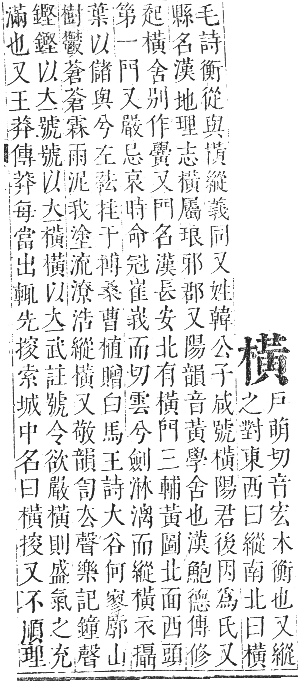 橫
戶萌切音宏木衡也又縱
之對東西曰縱南北曰橫
毛詩衡從與橫縱義同又姓韓公子咸號橫陽君後因爲氏又
縣名漢地理志橫屬琅邪郡又陽韻音黃學舍也漢鮑德傳修
起橫舍別作黌又門名漢長安北有橫門三輔黃圖北面西頭
第一門又嚴忌哀時命冠崔嵬而切雲兮劍淋漓而縱橫衣攝
葉以儲與兮左袪挂于榑桑曹植贈白馬王詩大谷何寥廓山
樹鬱蒼蒼霖雨泥我塗流潦浩縱橫又敬韻訇去聲樂記鐘聲
鏗鏗以立號號以立橫橫以立武註號令欲嚴橫則盛氣之充
滿也又王莽傳莽每當出輒先搜索城中名曰橫搜又不順理